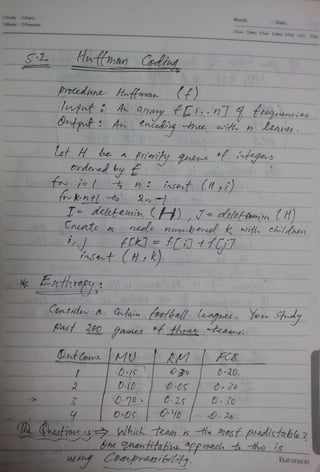 5.2. Huffman Coding
procedure Huffman (f)
Input : An array f[1...n] of frequencies
Output : An encoding tree with n leaves.
Let H be a priority queue of integers
ordered by f
for i=1 to n: insert (H,i)
for k=n+1 to 2n-1
I = deletemin (H), J = deletemin (H)
Create a node numbered k with children
i, j f[k] = f[i] + f[j]
insert (H, k)
* Enthropy:
Consider a certain football leagues. You study
Past 200 games of three teams.
Outcome MU RM FCB
1 0.15 0.30 0.20
2 0.10 0.05 0.30
→ 3 0.70 0.25 0.30
4 0.05 0.40 0.20
The Question is ⇒ Which team is the most predictable?
One quantitative approach to this is
using Compressibility.